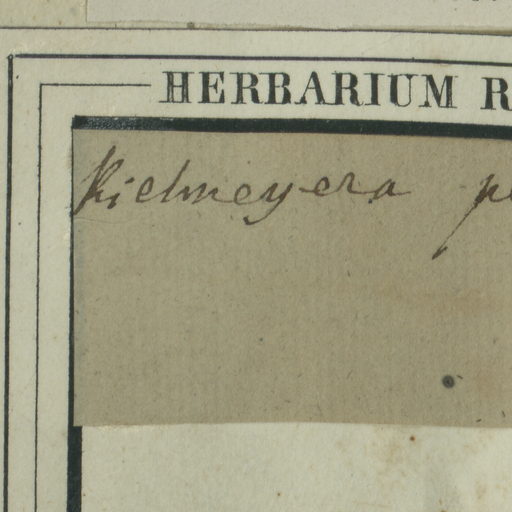 HERBARIUM R
Kielmeyera pe